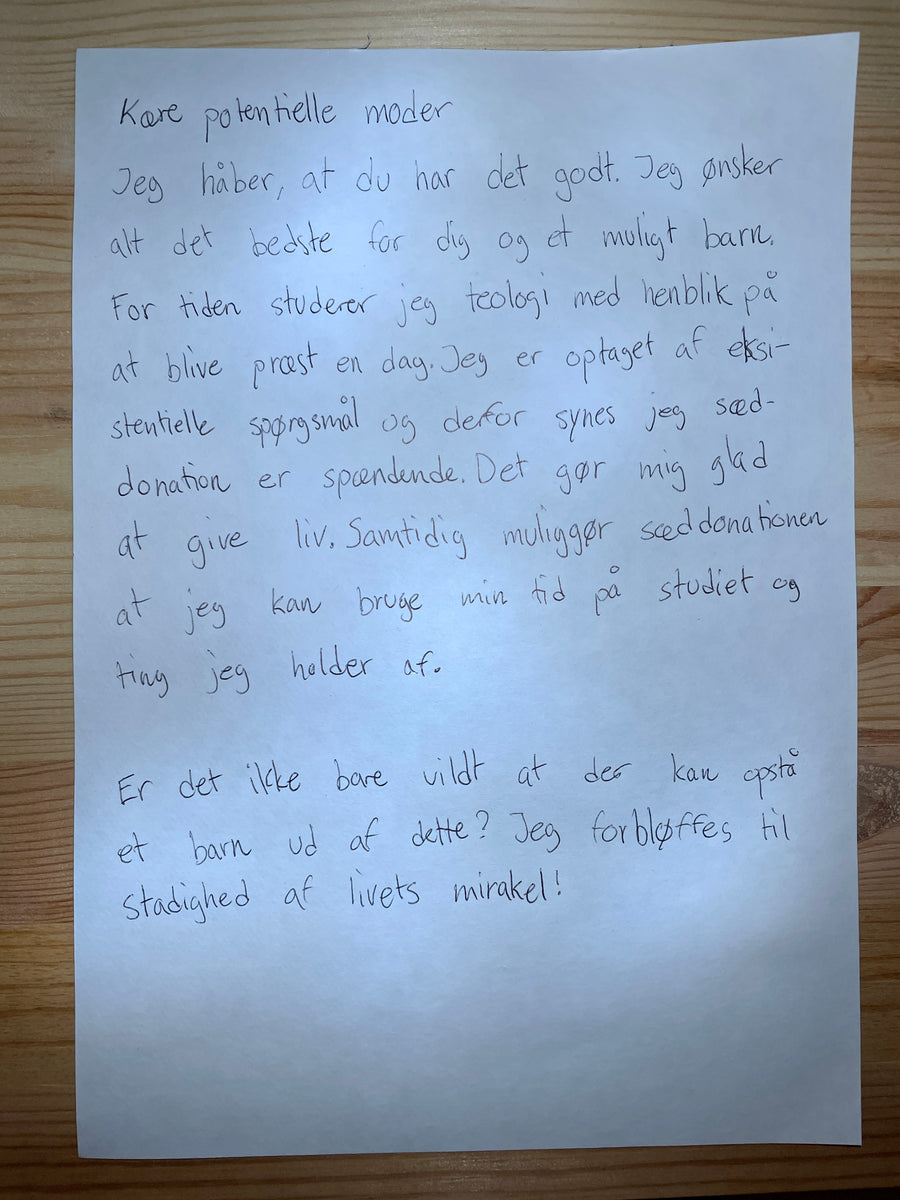 Kære potentielle moder
Jeg håber, at du har det godt. Jeg ønsker
alt det bedste for dig og et muligt barn.
For tiden studerer jeg teologi med henblik på
at blive præst en dag. Jeg er optaget af eksi-
stentielle spørgsmål og derfor synes jeg sæd-
donation er spændende. Det gør mig glad
at give liv. Samtidig muliggør sæddonationen
at jeg kan bruge min tid på studiet og
ting jeg holder af.
Er det ikke bare vildt at der kan opstå
et barn ud af dette? Jeg forbløffes til
stadighed af livets mirakel!